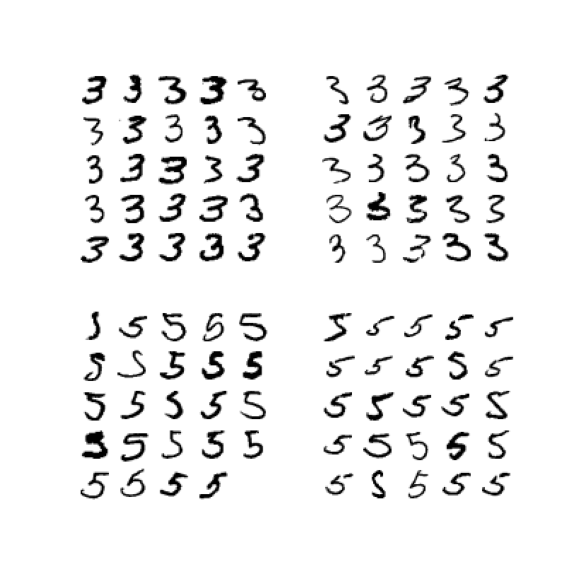 3 3 3 3 3 3 3 3 3 3
3 3 3 3 3 3 3 3 3 3
3 3 3 3 3 3 3 3 3 3
3 3 3 3 3 3 3 3 3 3
3 3 3 3 3 3 3 3 3 3
5 5 5 5 5 5 5 5 5 5
5 5 5 5 5 5 5 5 5 5
5 5 5 5 5 5 5 5 5 5
5 5 5 5 5 5 5 5 5 5
5 5 5 5 5 5 5 5 5